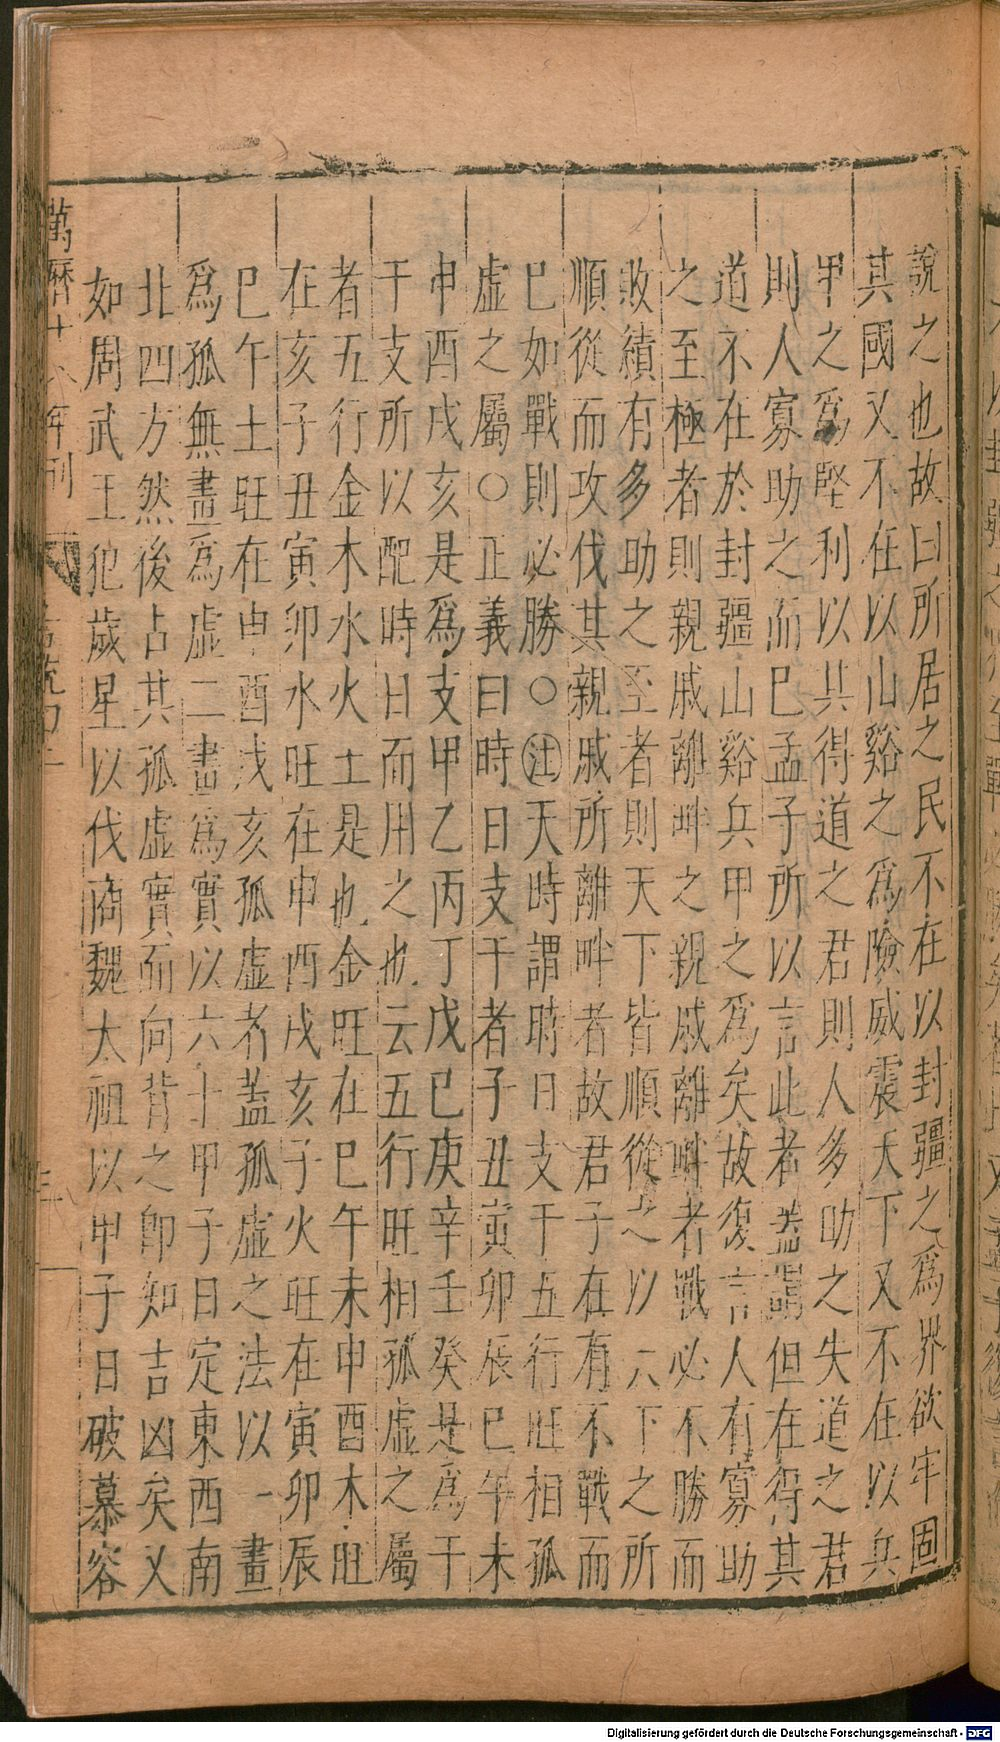 說之也故曰所居之民不在以封疆之爲界欲牢固
其國又不在以山谿之爲險威震天下又不在以兵
甲之爲堅利以其得道之君則人多助之失道之君
則人寡助之而巳孟子所以言此者蓋謂但在得其
道不在於封疆山谿兵甲之爲矣故復言人有寡助
之至極者則親戚離畔之親戚離畔者戰必不勝而
敗績有多助之至者則天下皆順從之以天下之所
順從而攻伐其親戚所離畔者故君子在有不戰而
巳如戰則必勝○注天時謂時日支干五行旺相孤
虛之屬○正義曰時日支干者子丑寅卯辰巳午未
申酉戌亥是爲支甲乙丙丁戊巳庚辛壬癸是爲干
干支所以配時日而用之也云五行旺相孤虛之屬
者五行金木水火土是也金旺在巳午未申酉木旺
在亥子丑寅卯水旺在申酉戌亥子火旺在寅卯辰
巳午土旺在申酉戌亥孤虛者蓋孤虛之法以一畫
爲孤無畫爲虛二畫爲實以六十甲子日定東西南
北四方然後占其孤虛實而向背之卽知吉凶矣又
如周武王犯歲星以伐商魏太祖以甲子日破慕容
萬曆十八年刊
Digitalisierung gefördert durch die Deutsche Forschungsgemeinschaft - DFG